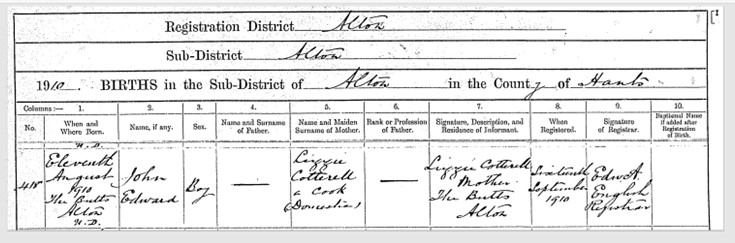 Registration District Alton
Sub-District Alton
1910. BIRTHS in the Sub-District of Alton in the County of Hants
Columns:— 1. 2. 3. 4. 5. 6. 7. 8. 9. 10.
No. When and Where Born. Name, if any. Sex. Name and Surname of Father. Name and Maiden Surname of Mother. Rank or Profession of Father. Signature, Description, and Residence of Informant. When Registered. Signature of Registrar. Baptismal Name if added after Registration of Birth.
U.D.
Eleventh August 1910 The Butts Alton U.D.
John Edward
Boy
—
Lizzie Cotterell a Cook (Domestic)
—
Lizzie Cotterell Mother The Butts Alton
Sixteenth September 1910
Edw A. English Registrar